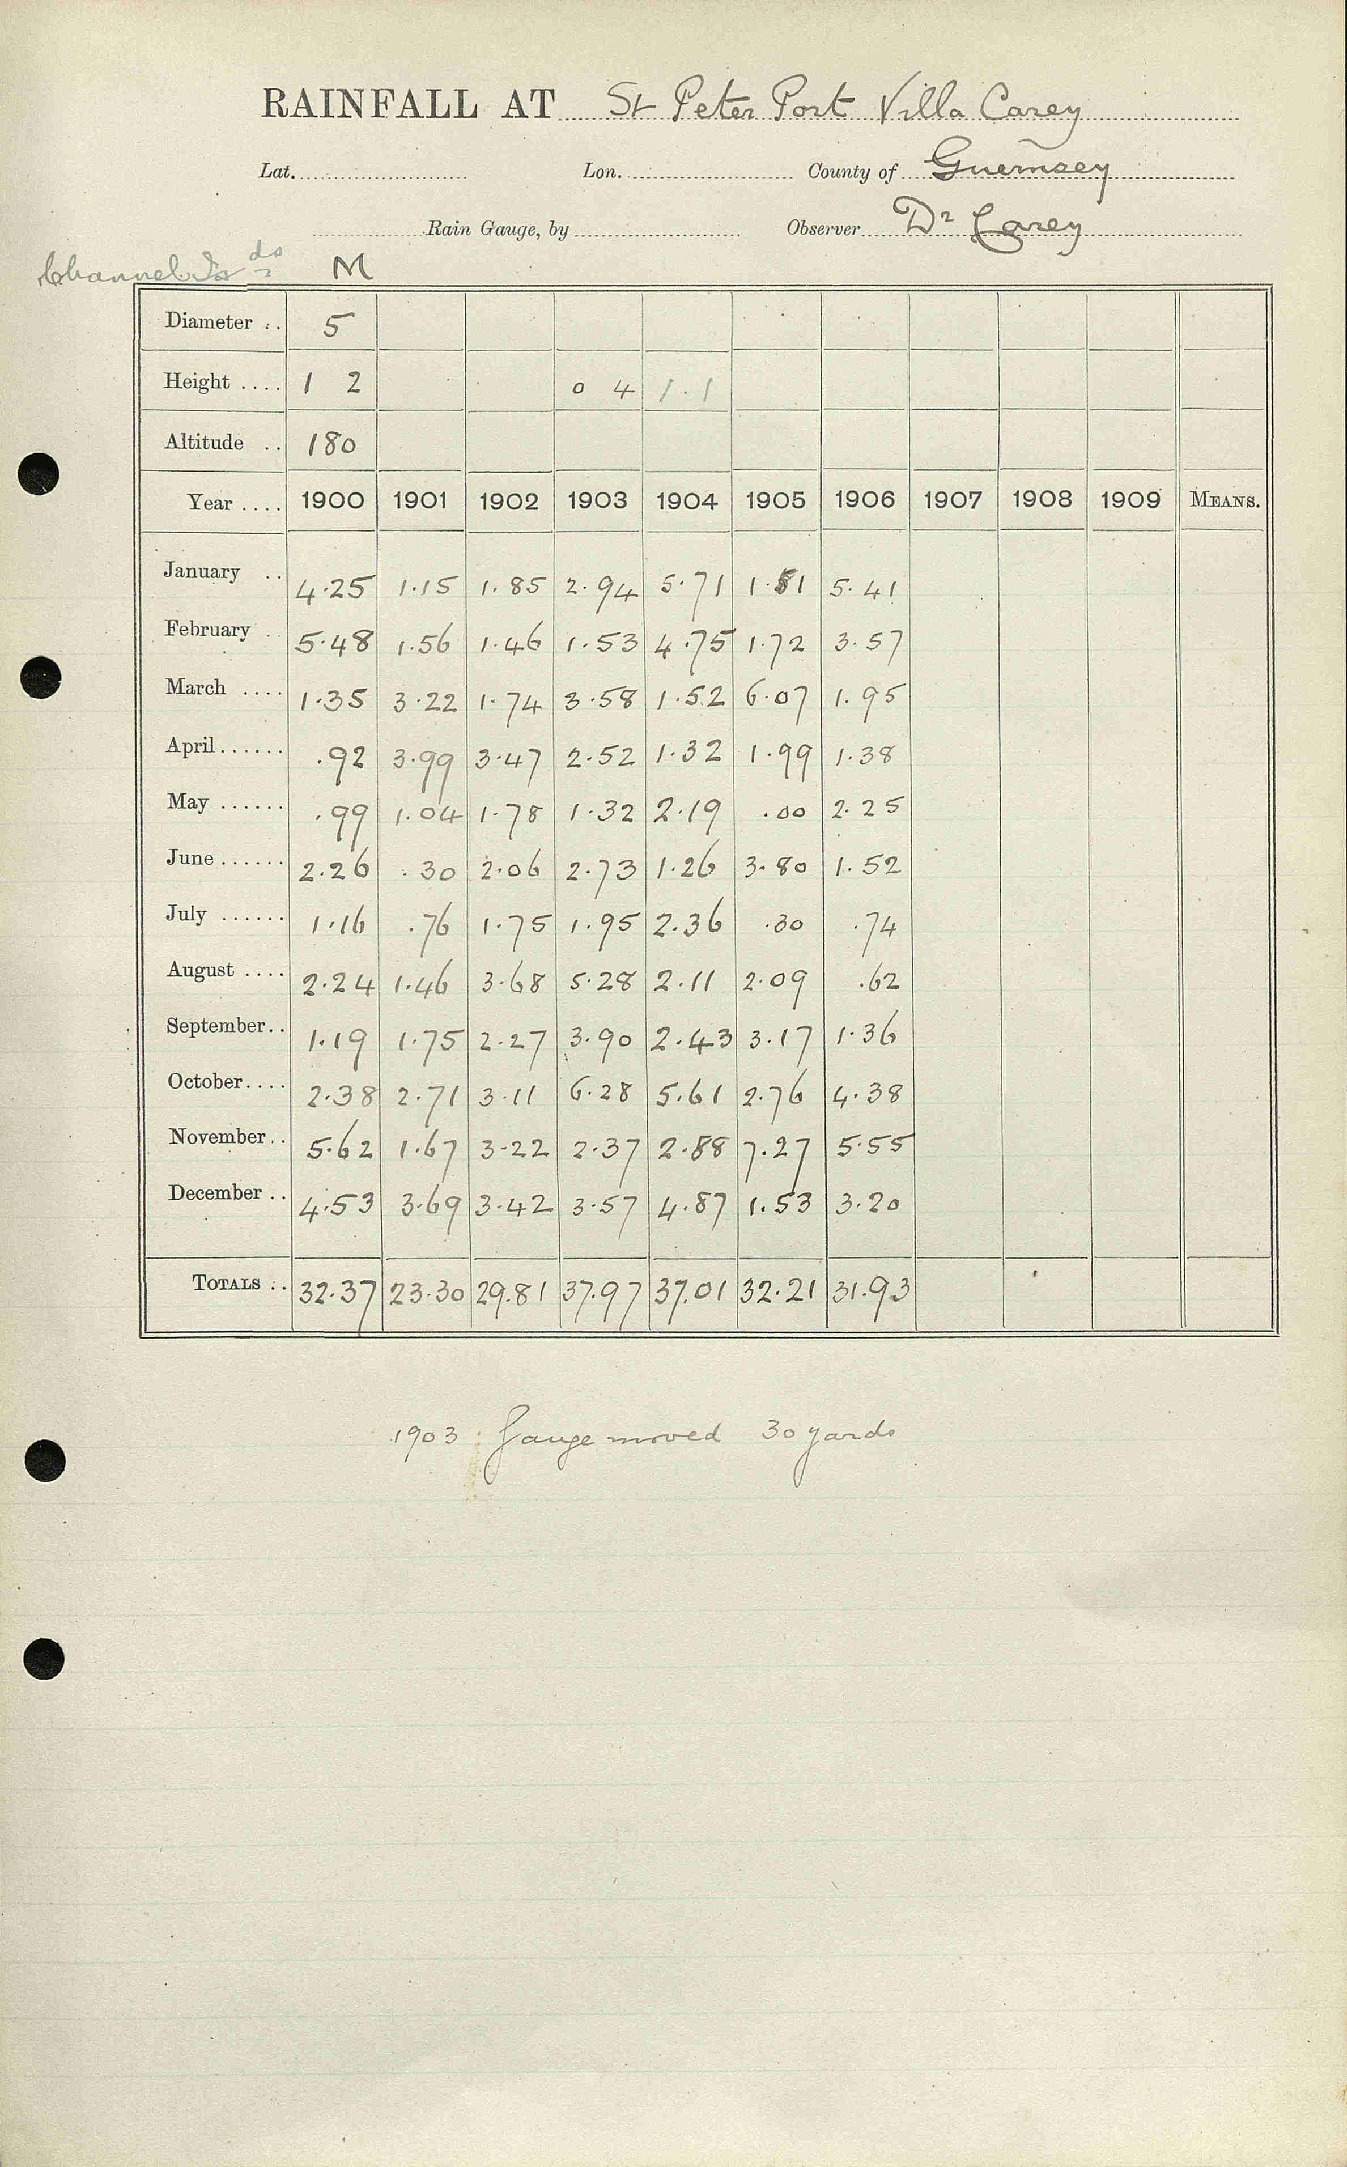 RAINFALL AT St Peter Port Villa Carey
Lat. Lon. County of Guernsey
Rain Gauge, by Observer Dr Carey
Channel Is ds M
Diameter .. 5
Height .... 1 2 0 4 1.1
Altitude .. 180
Year .... 1900 1901 1902 1903 1904 1905 1906 1907 1908 1909 MEANS.
January .. 4.25 1.15 1.85 2.94 5.71 1.51 5.41
February .. 5.48 1.56 1.46 1.53 4.75 1.72 3.57
March .... 1.35 3.22 1.74 3.58 1.52 6.07 1.95
April ...... .92 3.99 3.47 2.52 1.32 1.99 1.38
May ...... .99 1.04 1.78 1.32 2.19 .00 2.25
June ...... 2.26 .30 2.06 2.73 1.26 3.80 1.52
July ...... 1.16 .76 1.75 1.95 2.36 .30 .74
August .... 2.24 1.46 3.68 5.28 2.11 2.09 .62
September .. 1.19 1.75 2.27 3.90 2.43 3.17 1.36
October .... 2.38 2.71 3.11 6.28 5.61 2.76 4.38
November .. 5.62 1.67 3.22 2.37 2.88 7.27 5.55
December .. 4.53 3.69 3.42 3.57 4.87 1.53 3.20
TOTALS .. 32.37 23.30 29.81 37.97 37.01 32.21 31.93
1903 Gauge moved 30 yards